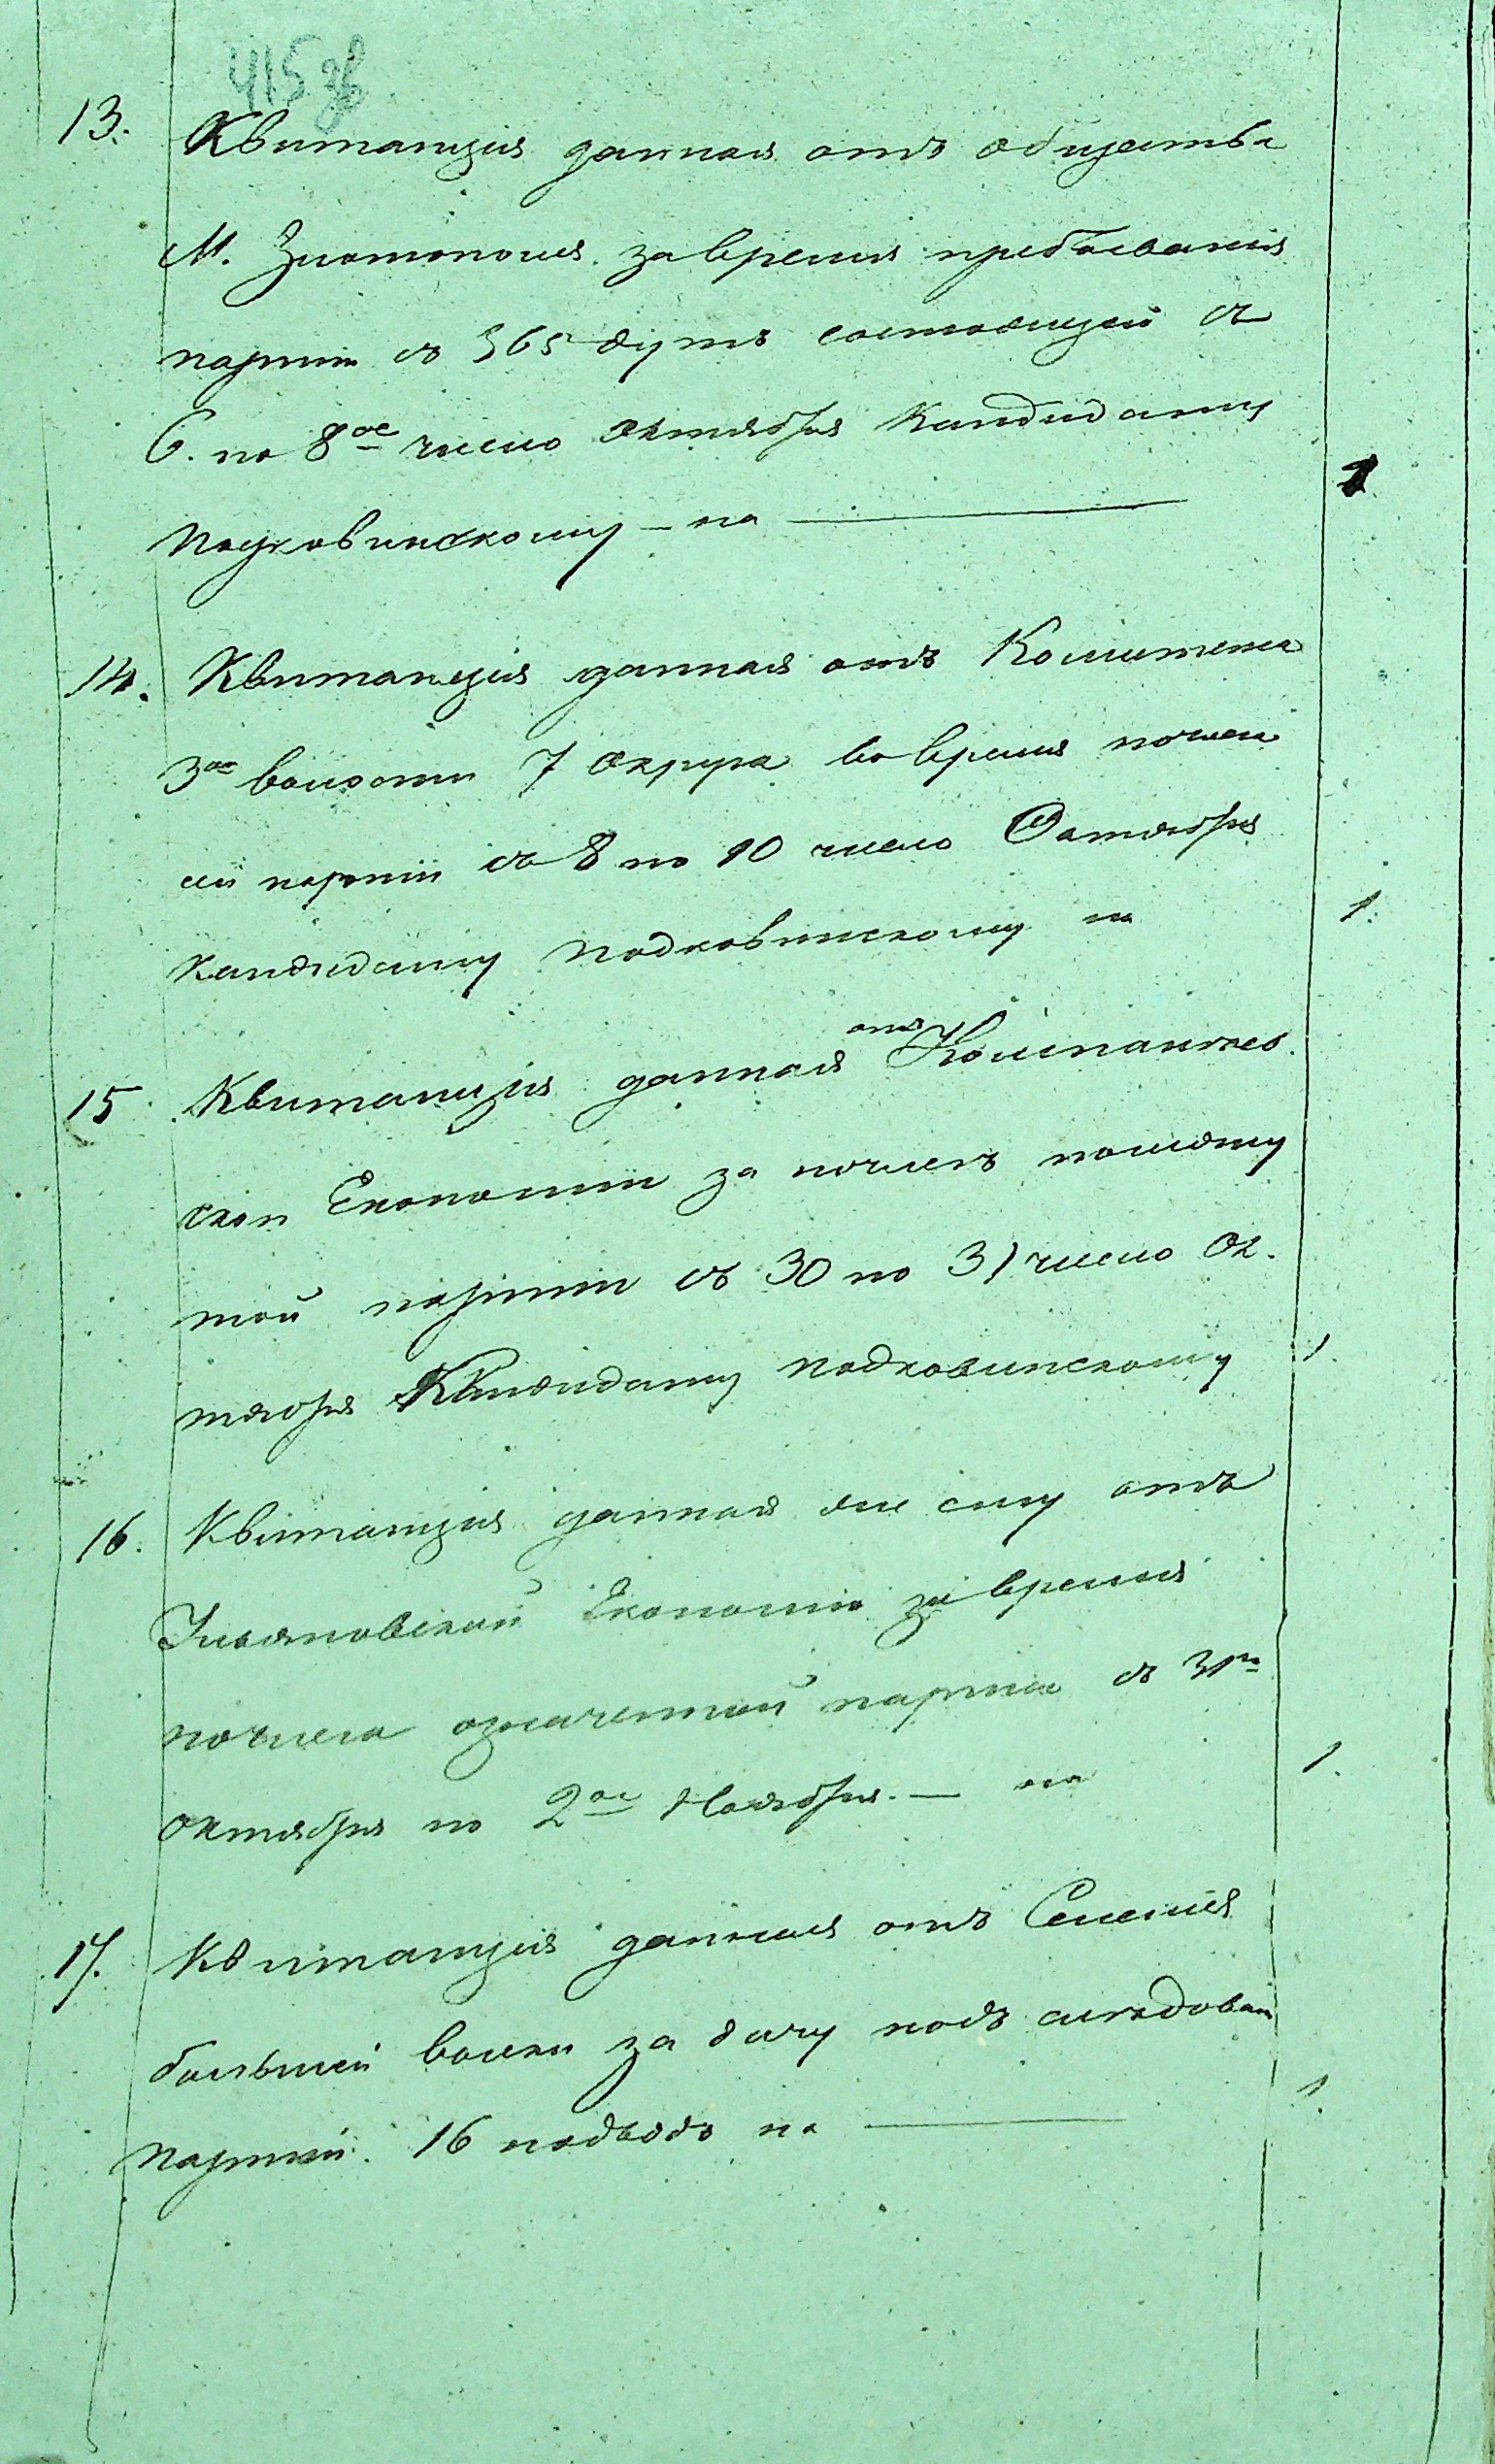 415 зв.
13. Квитанция данная отъ общества
М. Златополя за время пребывания
партии въ 365 душъ состоящей съ
6. по 8ое число октября Кандидату
Подковинскому — на — 1
14. Квитанция данная отъ Комитета
3ой волости 7 округа во время ночле
ей партіи съ 8 по 10 число Октября
кандидату Подковинскому на 1.
15 Квитанция данная отъ Компаніев
ской Економіи за ночлегъ
той партіи съ 30 по 31 число Ок-
тября Кандидату Подковинскому 1.
16. Квитанция данная ему отъ
Економіи за время
ночлега означенной партіи съ 31го
октября по 2ое Ноября. — на 1.
17. Квитанция данная отъ Селенія
большей за дачу подъ
партіи. 16 подводъ на — 1.